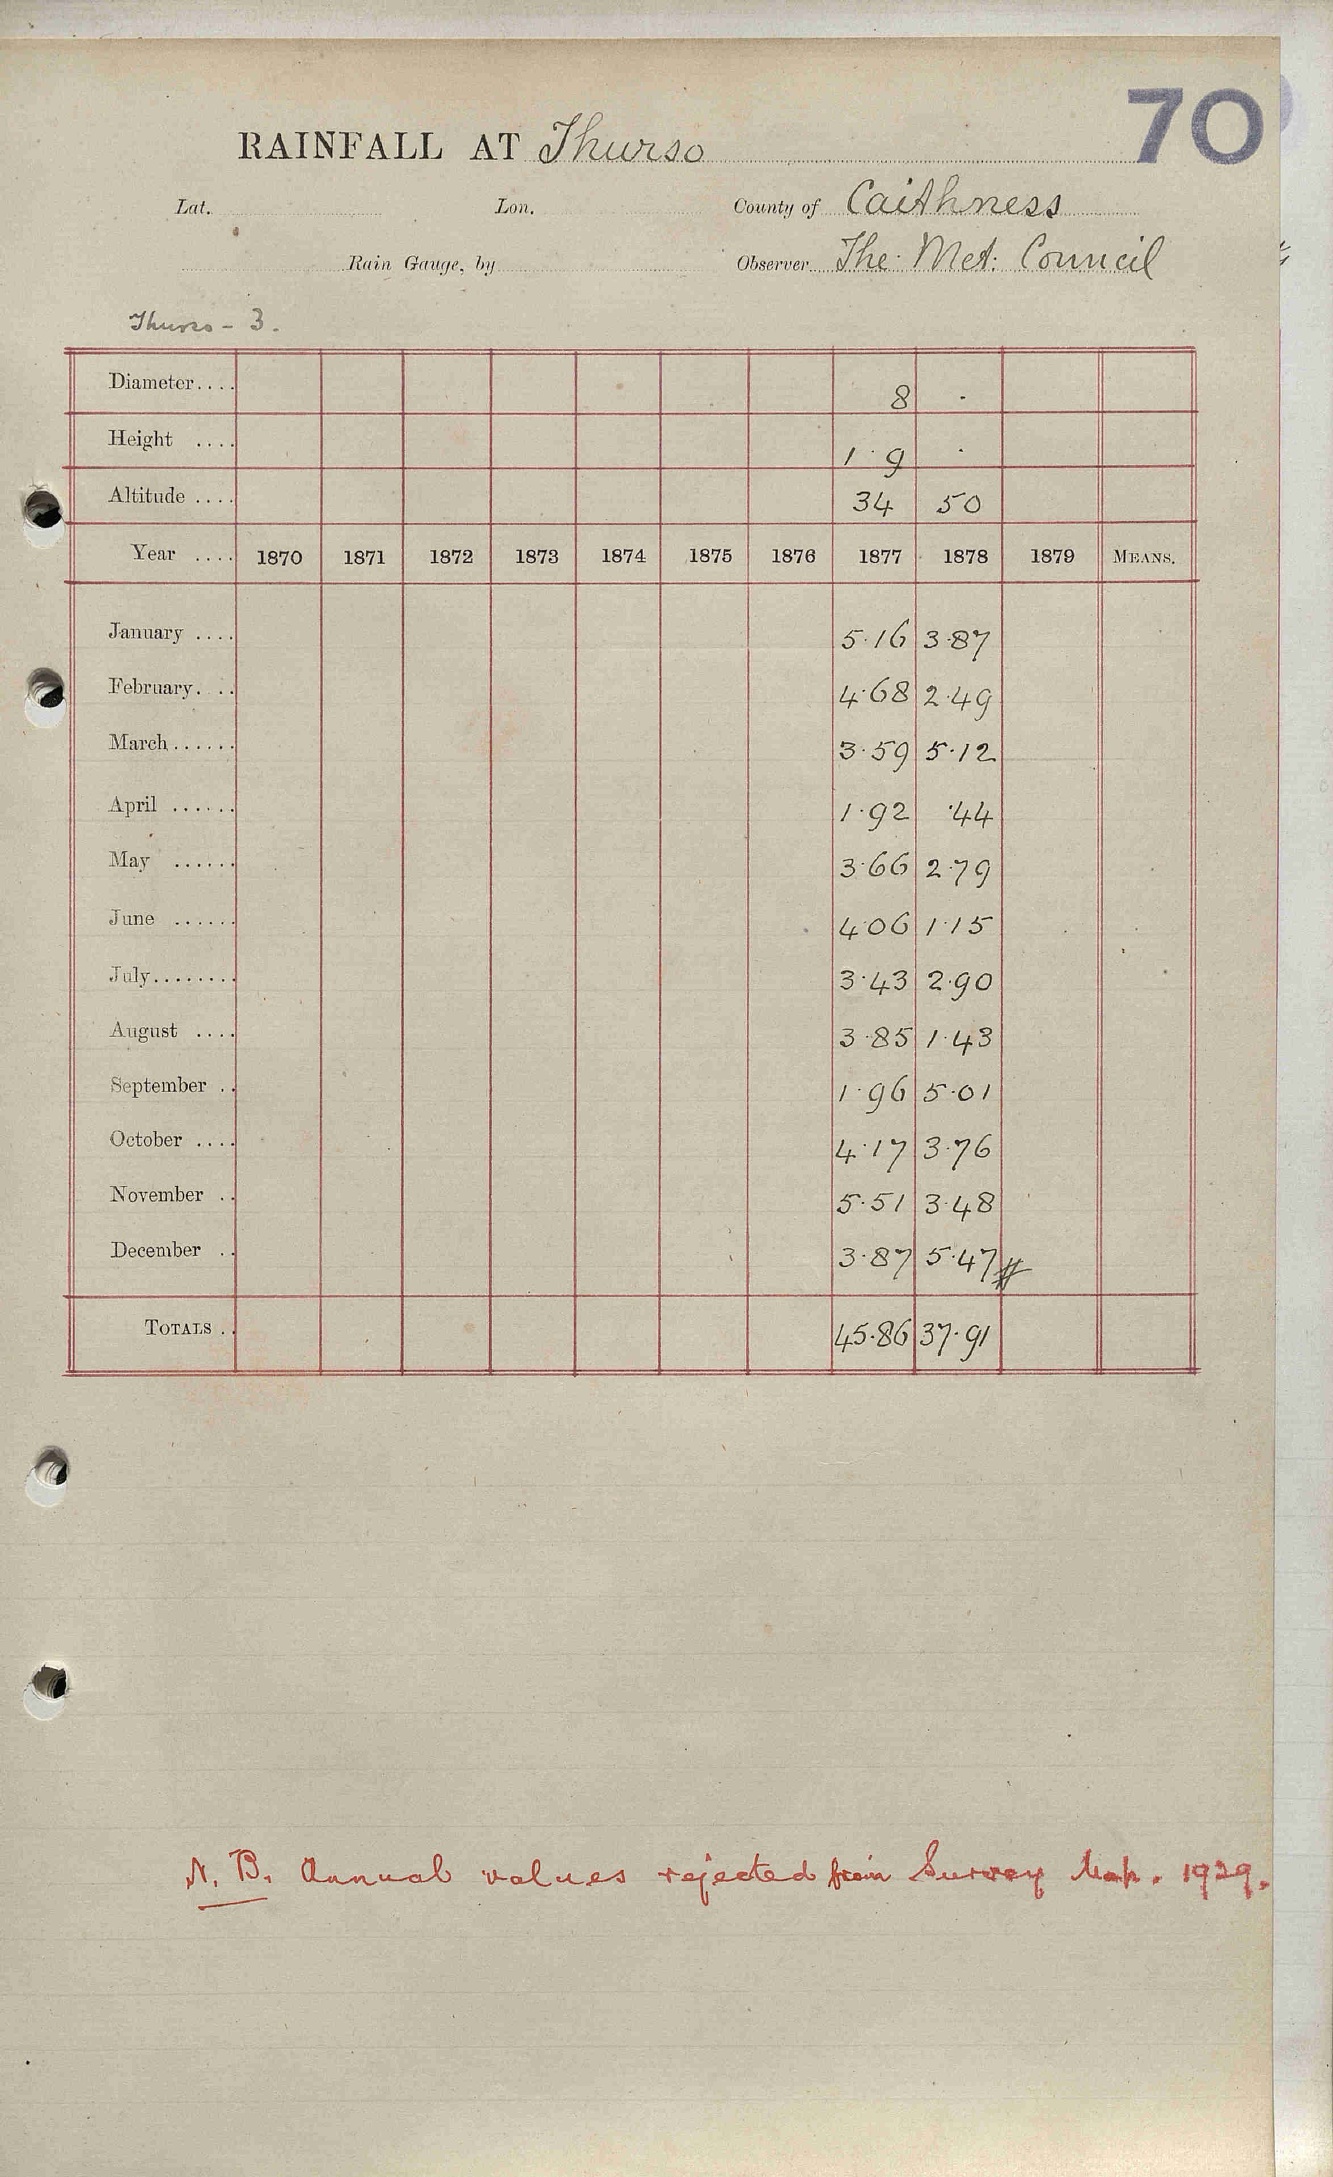 70
RAINFALL AT Thurso
Lat. Lon. County of Caithness
Rain Gauge, by Observer The Met: Council
Thurso - 3.
Diameter.... 8 ·
Height .... 1 · 9 ·
Altitude .... 34 50
Year .... 1870 1871 1872 1873 1874 1875 1876 1877 1878 1879 MEANS.
January .... 5·16 3·87
February. .. 4·68 2·49
March...... 3·59 5·12
April ...... 1·92 ·44
May ...... 3·66 2·79
June ...... 4·06 1·15
July........ 3·43 2·90
August .... 3·85 1·43
September .. 1·96 5·01
October .... 4·17 3·76
November .. 5·51 3·48
December .. 3·87 5·47 #
TOTALS .. 45·86 37·91
N. B. Annual values rejected from Survey Map. 1929.